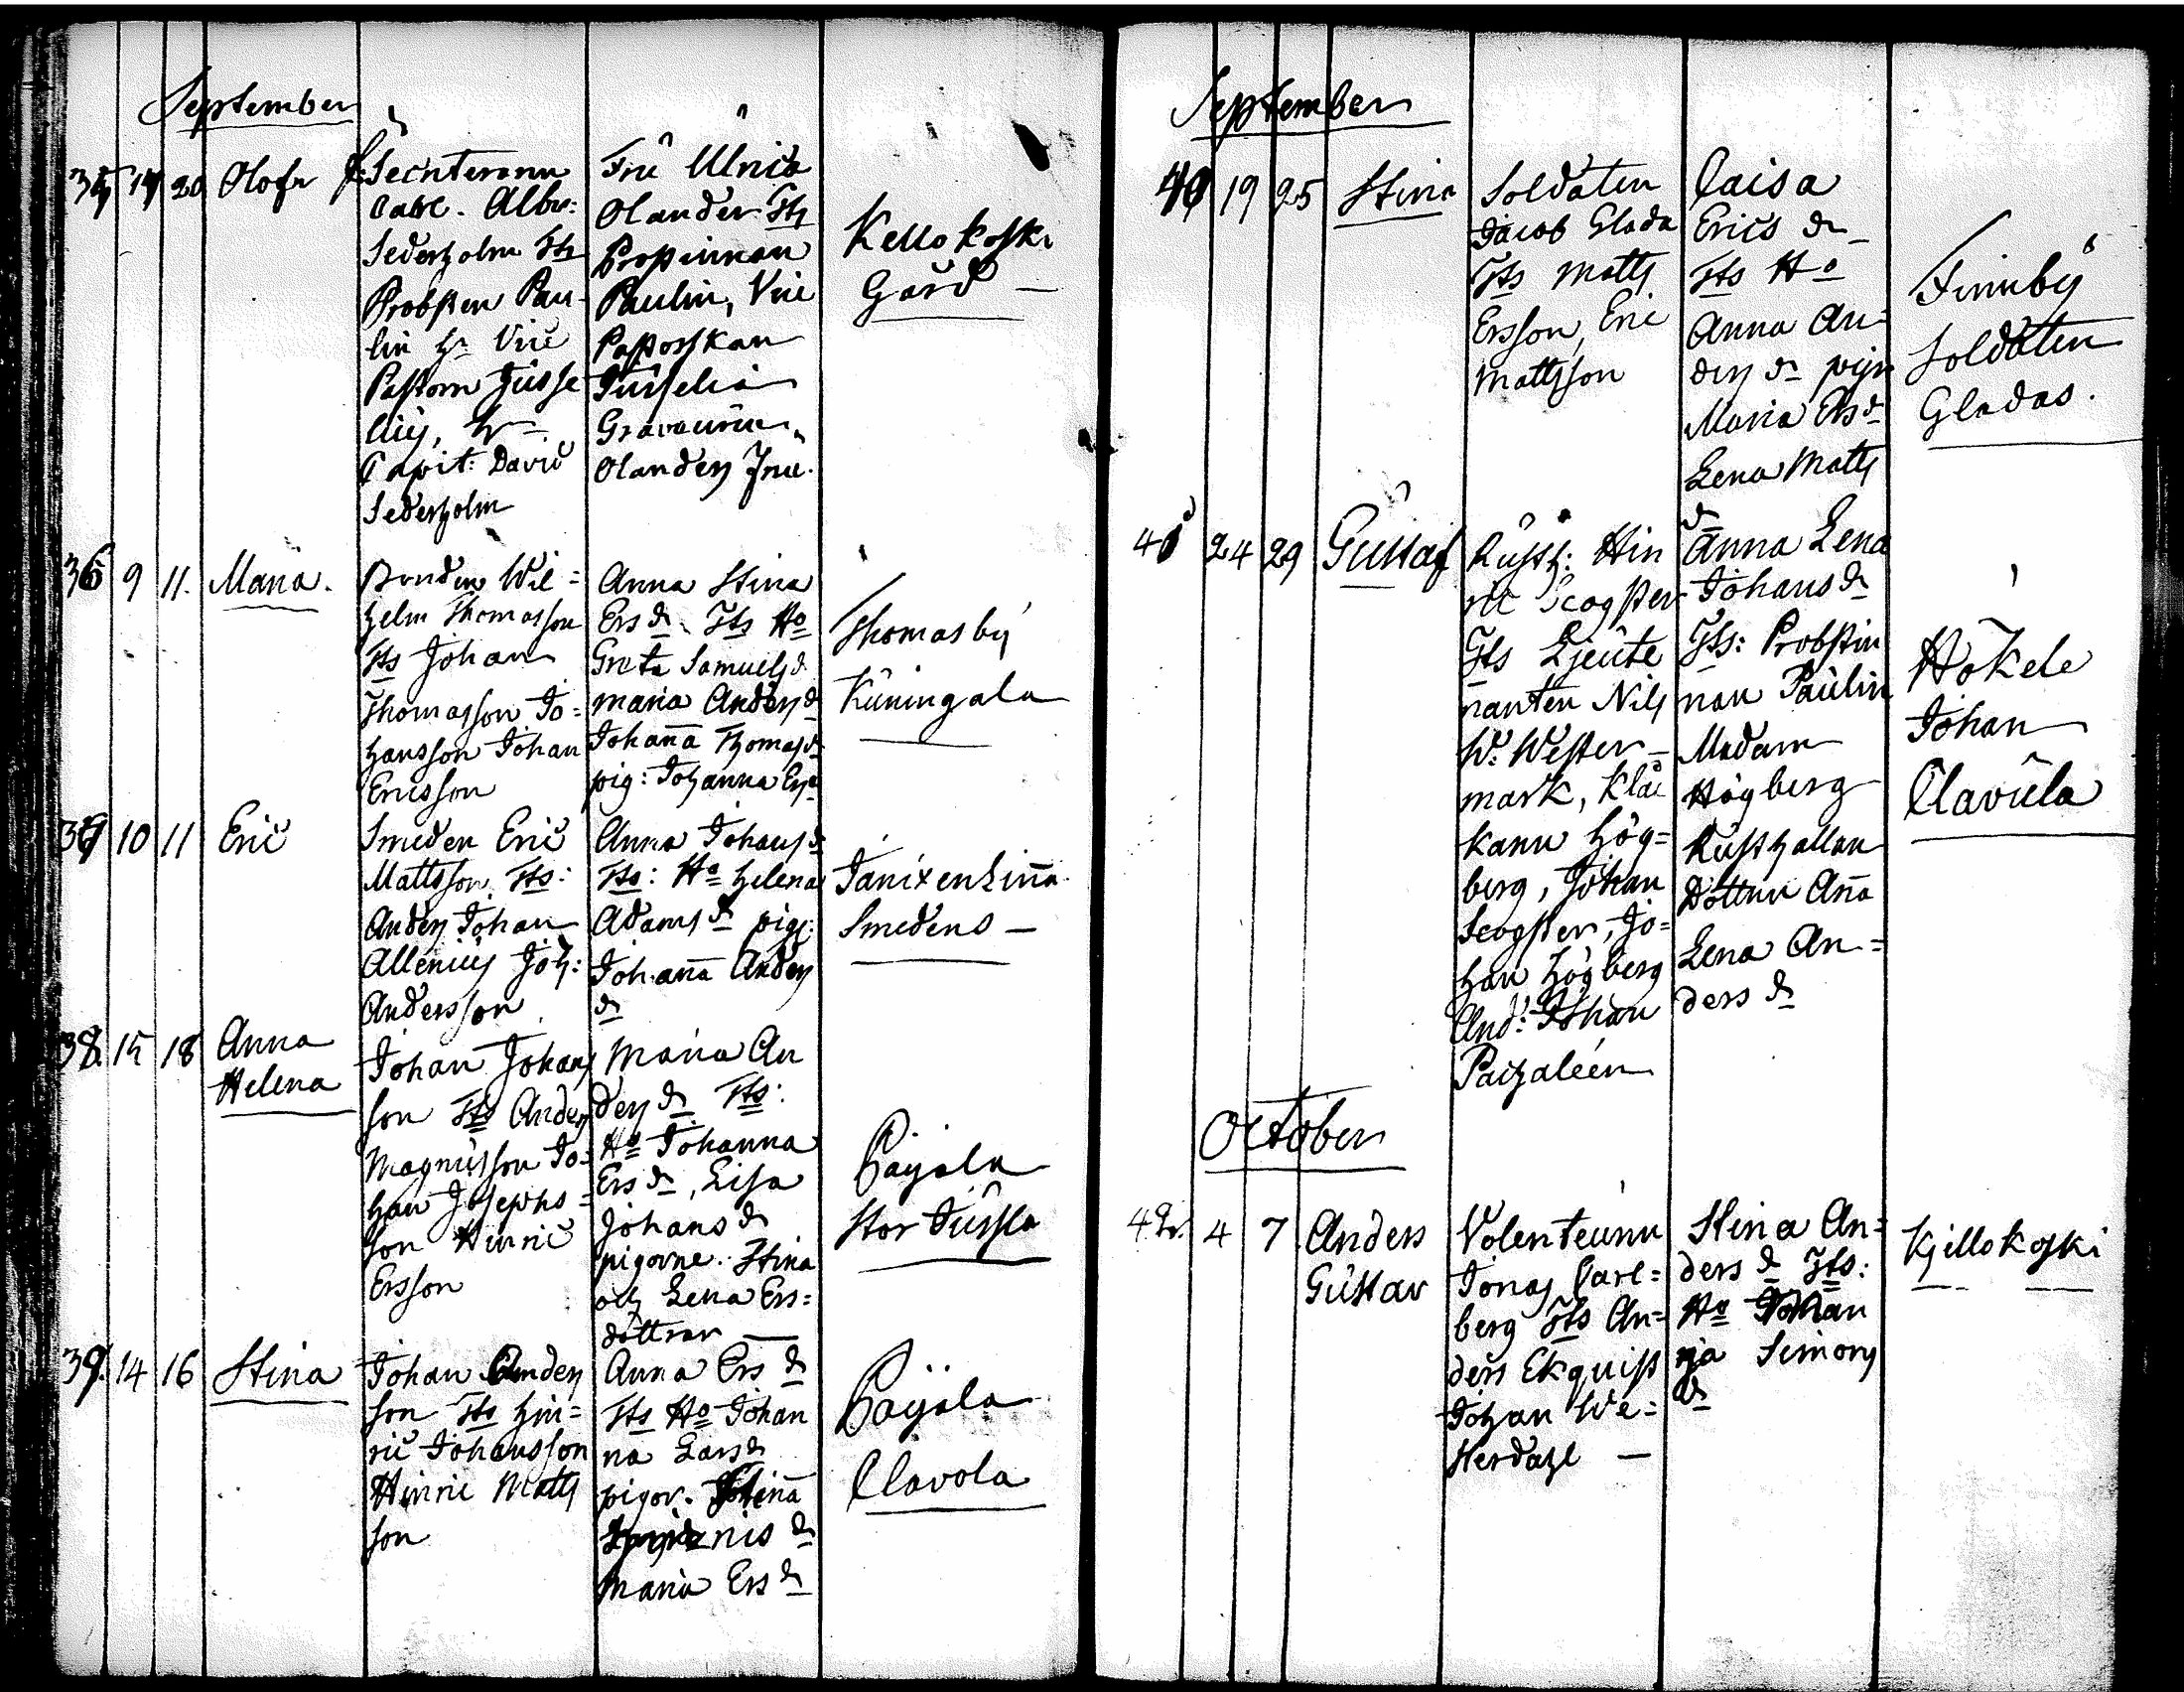 September
35 14 20 Olof
Secreteraren
Carl. Albr:
Sederholm Tts
Probsten Pau-
lin Hr Vice
Pastorn Tusse
lius, Hr
Capit: David
Sederholm
Fru Ulrica
Olander Tts
Prostinnan
Paulin, Vice
Pastorskan
Tusselia
Olanders Fru.
Kellokoski
Gård —
36 9 11. Maria.
Bonden Wil=
helm Thomasson
Tts Johan
Thomasson Jo=
hansson Johan
Ericsson
Anna Stina
Ers d. Tts Ho
Greta Samuels d
Maria Anders d
Johanna Thomas d
pig: Johanna Ers d
Thomasby
Kuningala
37 10 11 Eric
Smeden Eric
Mattsson, Tts:
Anders Johan
Allenius Joh:
Andersson
Anna Johans d
Tts: Ho Helena
Adams d pig:
Johanna Anders
d
Smedens —
38. 15 18 Anna
Helena
Johan Johans
son Tts Anders
Magnusson Jo=
han Josephs=
son Hinric
Ersson
Maria An
ders d Tts:
Ho Johanna
Ers d, Lisa
Johans d
pigorne. Stina
och Lena Ers=
döttrar —
Pajala
Stor Jussla
39. 14 16 Stina
Johan Anders
son Tts Hin=
ric Johansson
Hinric Matts
son
Anna Ers d
Tts Ho Johan
na Lars d
pigor. Stina
Maria Ers d
Pajala
Clavola
September
40 19 25 Stina
Soldaten
Jacob Glada
Tts Matts
Ersson, Eric
Mattsson
Caisa
Erics d
Tts Ho
Anna An=
ders d pigr
Maria Ers d
Lena Matts
d
Finnby
Soldaten
Gladas.
41 24 29 Gustaf
Rusth: Hin
ric Scogster
Tts Lieute
nanten Nils
W. Wester-
mark, Klåc
karn Hög=
berg, Johan
Scogster, Jo=
han Högberg
And: Johan
Paihaleen
Anna Lena
Johans d
Tts: Probstin
nan Paulin
Madam
Högberg
Rusthallan
Dottern Anna
Lena An=
ders d
Hökele
Johan
Clavula
October
42. 4 7 Anders
Gustav
Volenteuren
Jonas Carl=
berg Tts An=
ders Ekquist
Johan We=
sterdahl —
Stina An=
ders d Tts:
Ho Johan
na Simons
d
Kjellokoski